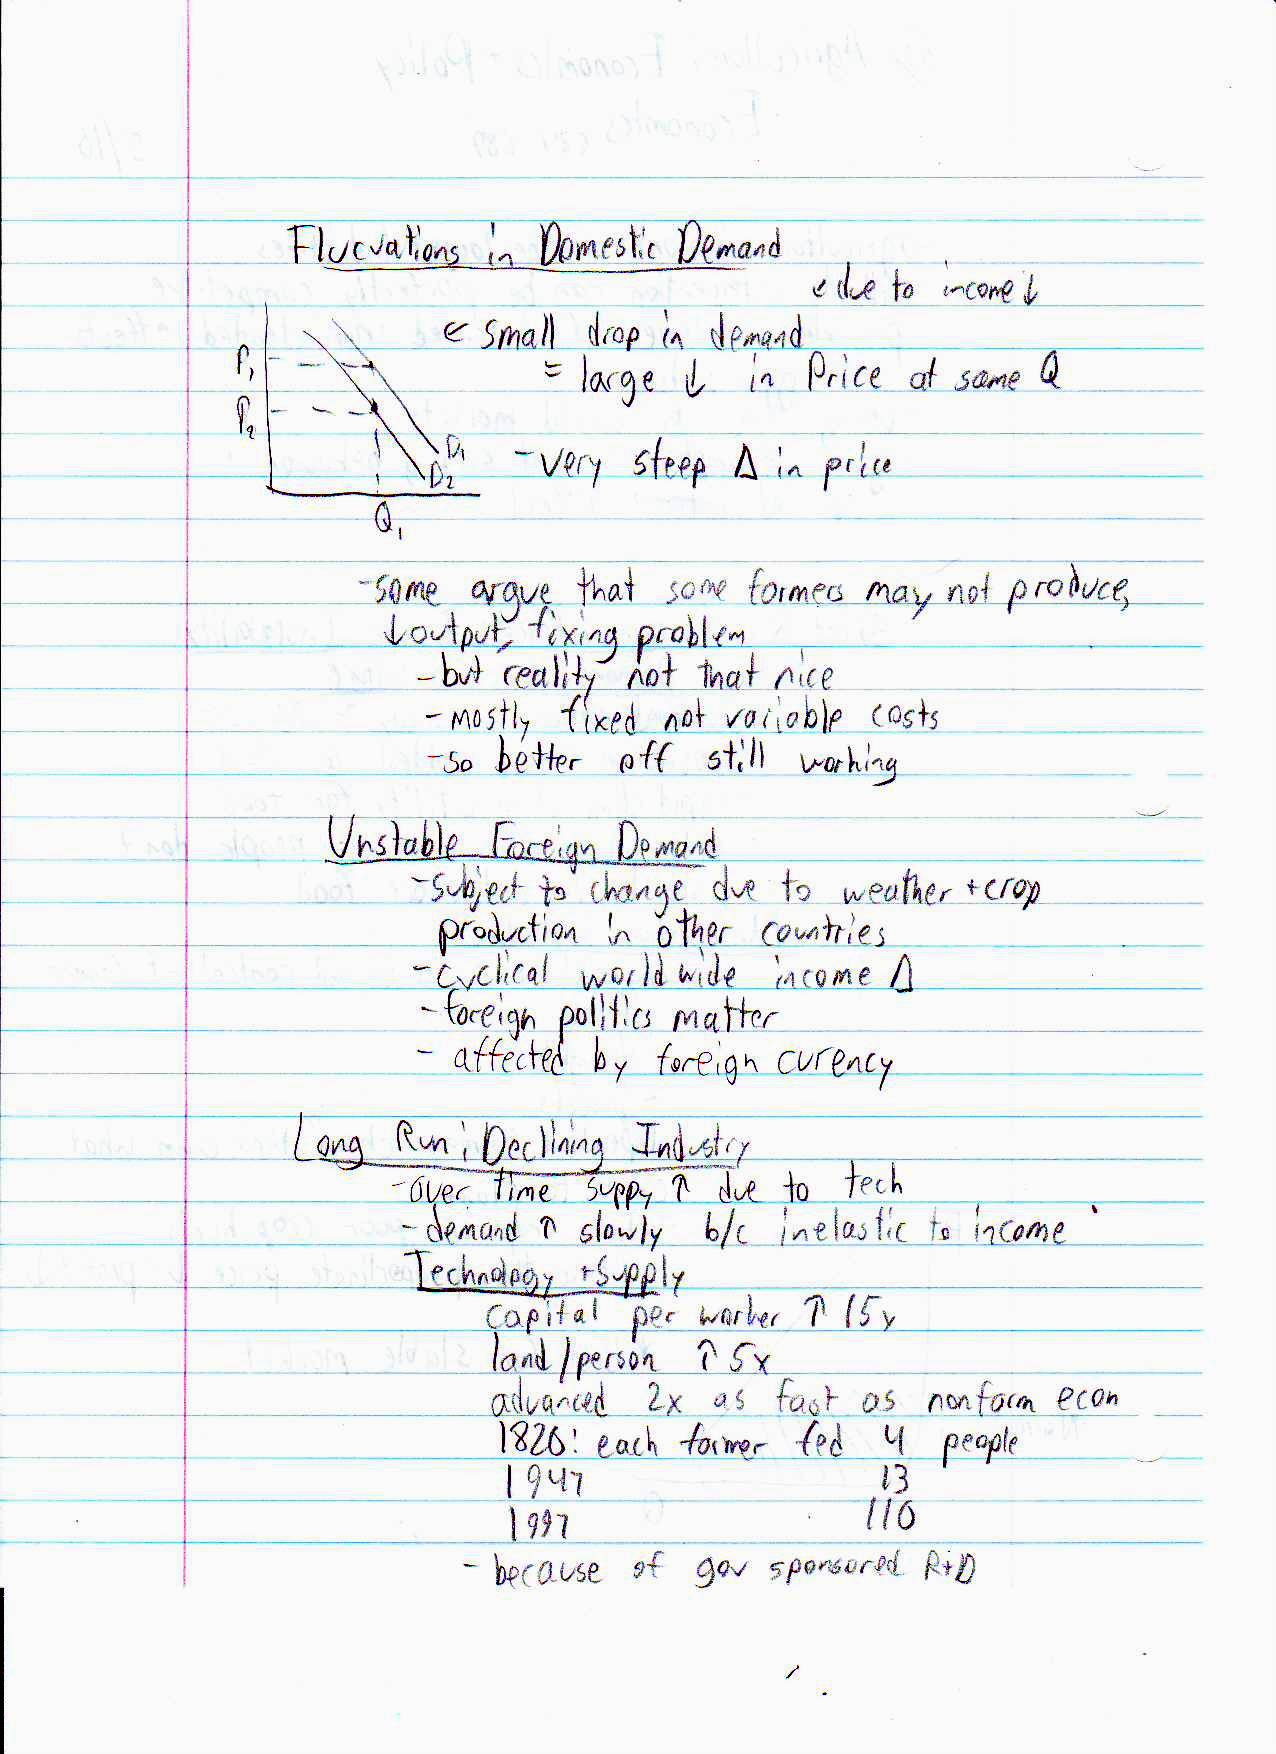 Flucuations in Domestic Demand
↙ due to income ↓
← small drop in demand
= large ↓ in Price at same Q
P₁
P₂
D₁
D₂
Q₁
- very steep Δ in price
- some argue that some farmers may not produce,
↓ output, fixing problem
- but reality not that nice
- mostly fixed not variable costs
- so better off still working
Unstable Foreign Demand
- subject to change due to weather + crop
production in other countries
- cyclical world wide income Δ
- foreign politics matter
- affected by foreign curency
Long Run: Declining Industry
- over time suppy ↑ due to tech
- demand ↑ slowly b/c inelastic to income
Technology + Supply
capital per worker ↑ 15x
land/person ↑ 5x
advanced 2x as fast as nonfarm econ
1820: each farmer fed 4 people
1947 13
1997 110
- because of gov sponsored R+D